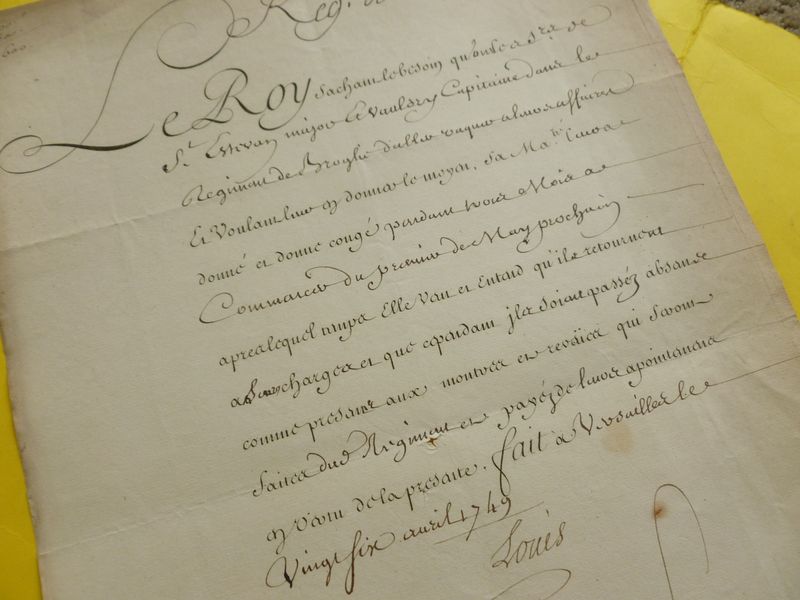 Reg.
600
Le Roy sachant le besoin qu'ont les Srs. de
St. Estevan major et Vaulsry Capitaine dans le
Regiment de Broglie d'aller vaquer a leurs affaires
Et Voulant leur en donner le moyen, Sa Maté. leur a
donné et donne congé pendant trois Mois a
Commancer du premier de May prochain
apres lequel temps Elle Veut et Entend qu'ils retournent
a leurs charges et que cependant jls soient passéz absents
comme presents aux montres et reveües qui seront
faites dud. Regiment et payéz de leurs apointements
en Vertu de la presente. fait a Versailles le
Vingt six avril 1749
Louis